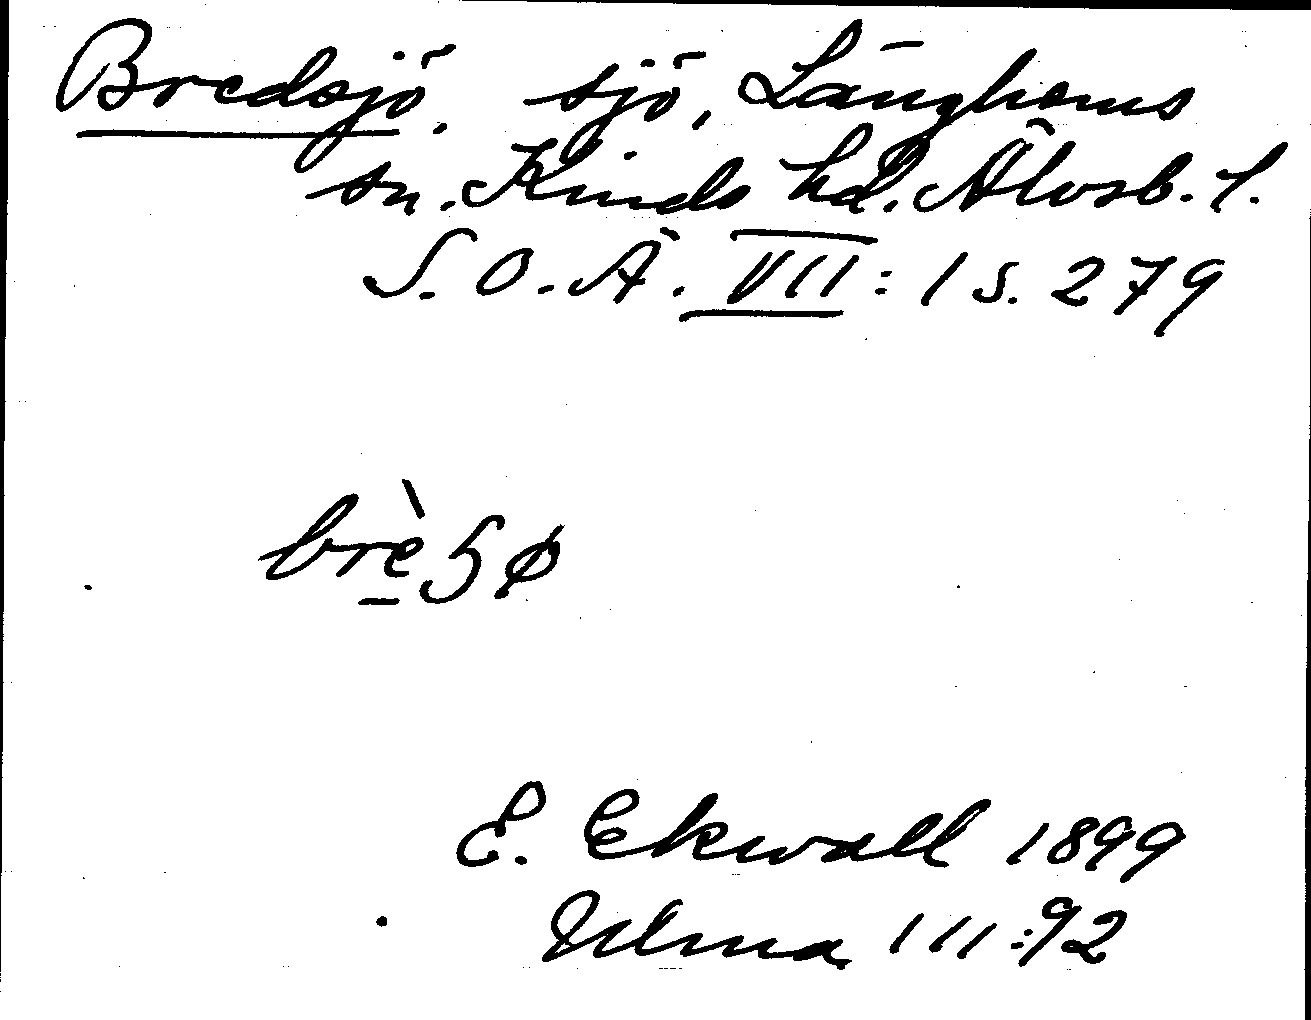 Bredsjö. sjö, Länghems
sn. Kinds hd. Älvsb. l.
S. O. Ä. VII : 1 s. 279
brèʒø
E. Ekwall 1899
Ulma 111:92